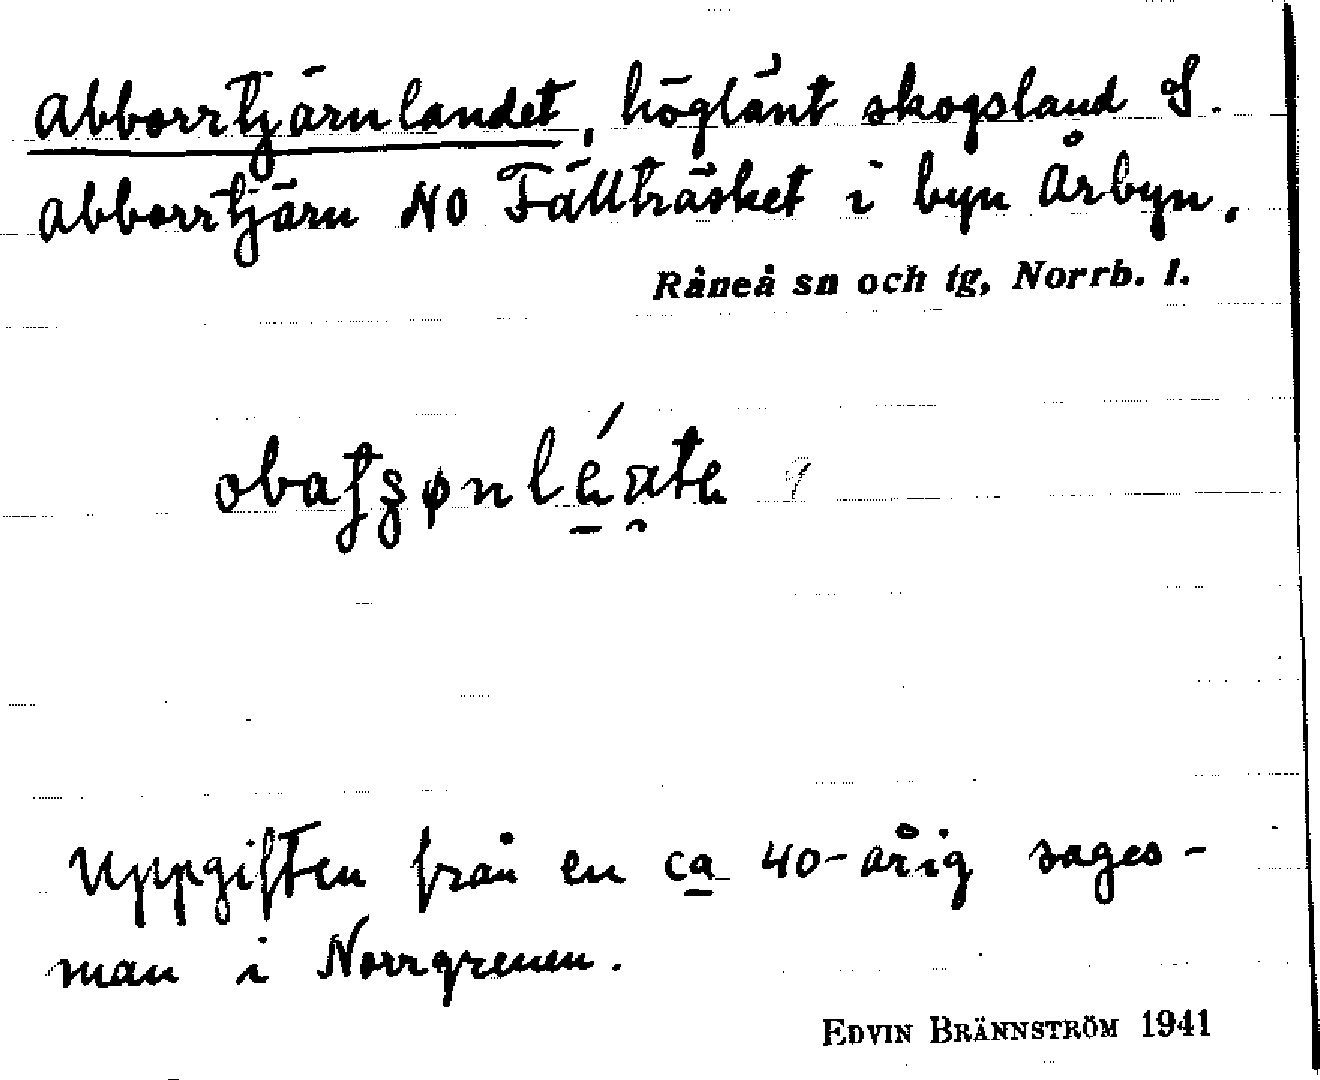 Abborrtjärnlandet, höglänt skogsland S.
Abborrtjärn NO Fällträsket i byn Årbyn.
Råneå sn och tg, Norrb. l.
Uppgiften från en ca 40-årig sages-
man i Norrgrenen.
EDVIN BRÄNNSTRÖM 1941